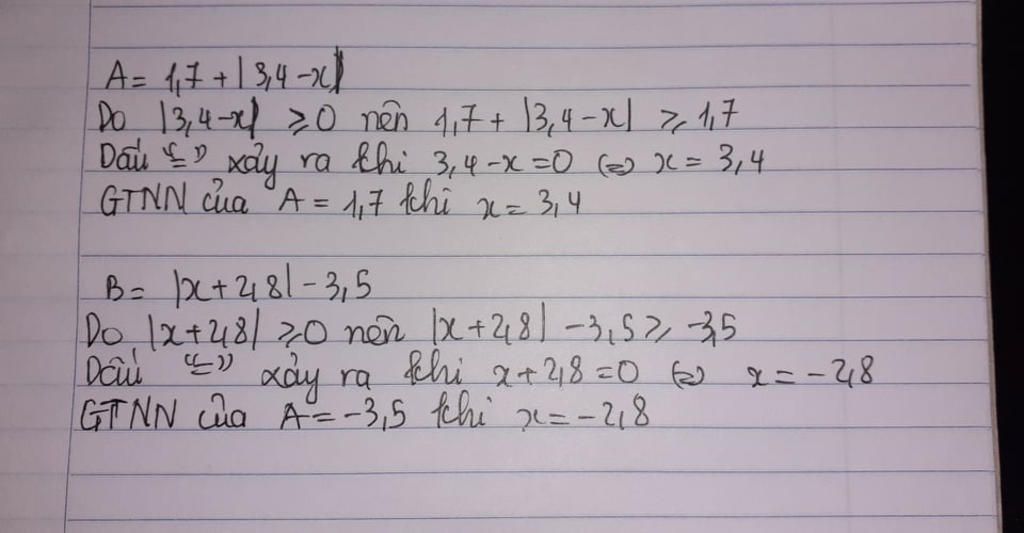 A = 1,7 + |3,4 - x|
Do |3,4 - x| ≥ 0 nên 1,7 + |3,4 - x| ≥ 1,7
Dấu "=" xảy ra khi 3,4 - x = 0 (=) x = 3,4
GTNN của A = 1,7 khi x = 3,4
B = |x + 2,8| - 3,5
Do |x + 2,8| ≥ 0 nên |x + 2,8| - 3,5 ≥ -3,5
Dấu "=" xảy ra khi x + 2,8 = 0 (=) x = -2,8
GTNN của A = -3,5 khi x = -2,8